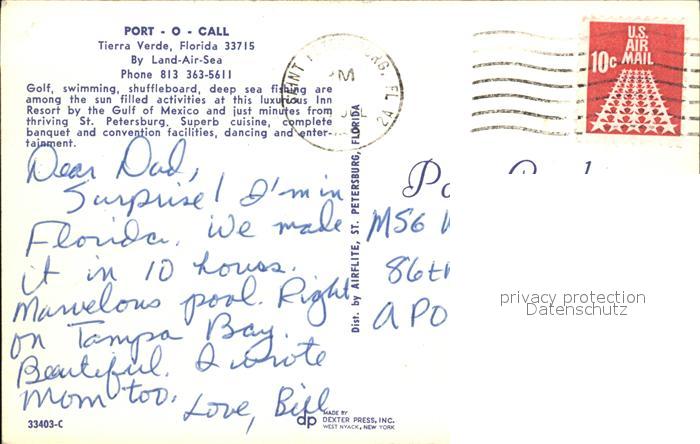 PORT - O - CALL
Tierra Verde, Florida 33715
By Land-Air-Sea
Phone 813 363-5611
Golf, swimming, shuffleboard, deep sea fishing are
among the sun filled activities at this luxurious Inn
Resort by the Gulf of Mexico and just minutes from
thriving St. Petersburg. Superb cuisine, complete
banquet and convention facilities, dancing and enter-
tainment.
Dear Dad,
Surprise! I'm in
Florida. We made
it in 10 hours.
Marvelous pool. Right
on Tampa Bay.
Beautiful. I wrote
Mom too.
Love, Bill
33403-C
dp MADE BY
DEXTER PRESS, INC.
WEST NYACK, NEW YORK
Dist. by AIRFLITE, ST. PETERSBURG, FLORIDA
PM
FL
U.S.
AIR
MAIL
10c
Po
MSG
86th
APO
privacy protection
Datenschutz